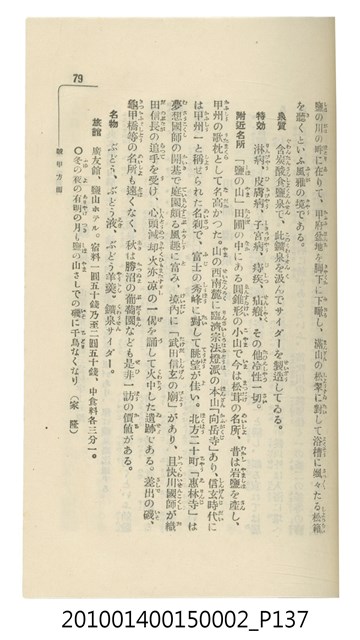 鹽の川の畔に在りて、甲府盆地を脚下に下瞰し、滿山の松翠に對して浴槽に颯々たる松籟
を聽くといふ風雅の境である。
泉質 含炭酸食鹽泉で、此鑛泉を汲んでサイダーを製造してゐる。
特効 淋病、皮膚病、子宮病、痔疾、疝痕、その他冷性一切。
附近名所 「鹽の山」田圃の中にある圓錐形の小山で今は松茸の名所、昔は岩鹽を產し、
甲州の歌枕として名高かつた。山の西南麓に臨濟宗法燈派の本山「向岳寺」あり、信玄時代に
は甲州一と稱せられた名刹で、富士の秀峰に對して眺望が佳い。北方二十町「惠林寺」は
夢想國師の開基で庭園頗る風趣に富み、境内に「武田信玄の廟」があり、且快川國師が織
田信長の追手を受け、心頭滅却火亦凉の一偈を誦して火中した遺跡である。差出の磯、
龜甲橋等の名所も遠くなく、秋は勝沼の葡萄園なども是非一訪の價値がある。
名物 ぶどう、ぶどう液、ぶどう羊羹、鑛泉サイダー。
旅館 廣友館、鹽山ホテル。宿料一圓五十錢乃至二圓五十錢、中食料各三分一。
○冬の夜の有明の月も鹽の山さしでの磯に千鳥なくなり（家隆）
驗甲方面
79
201001400150002_P137